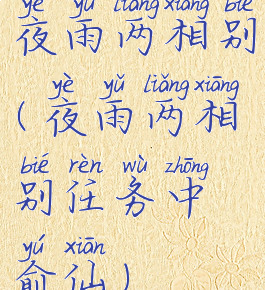 yè yǔ liǎng xiāng bié
夜雨两相别
yè yǔ liǎng xiāng
(夜雨两相
bié rèn wù zhōng
别任务中
yú xiān
俞仙)